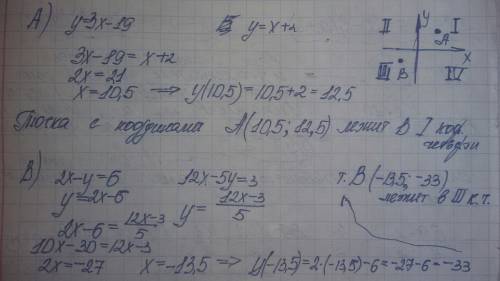 А) y=3x-19 y=x+2
3x-19=x+2
2x=21
x=10,5 ⟹ y(10,5)=10,5+2=12,5
II y I
A
x
III B IV
Точка с координатами A(10,5; 12,5) лежит в I коорд.
четверти
В) 2x-y=6 12x-5y=3 т. B(-13,5; -33)
y=2x-6 y=\frac{12x-3}{5} лежит в III к.т.
2x-6=\frac{12x-3}{5}
10x-30=12x-3
2x=-27 x=-13,5 ⟹ y(-13,5)=2·(-13,5)-6=-27-6=-33